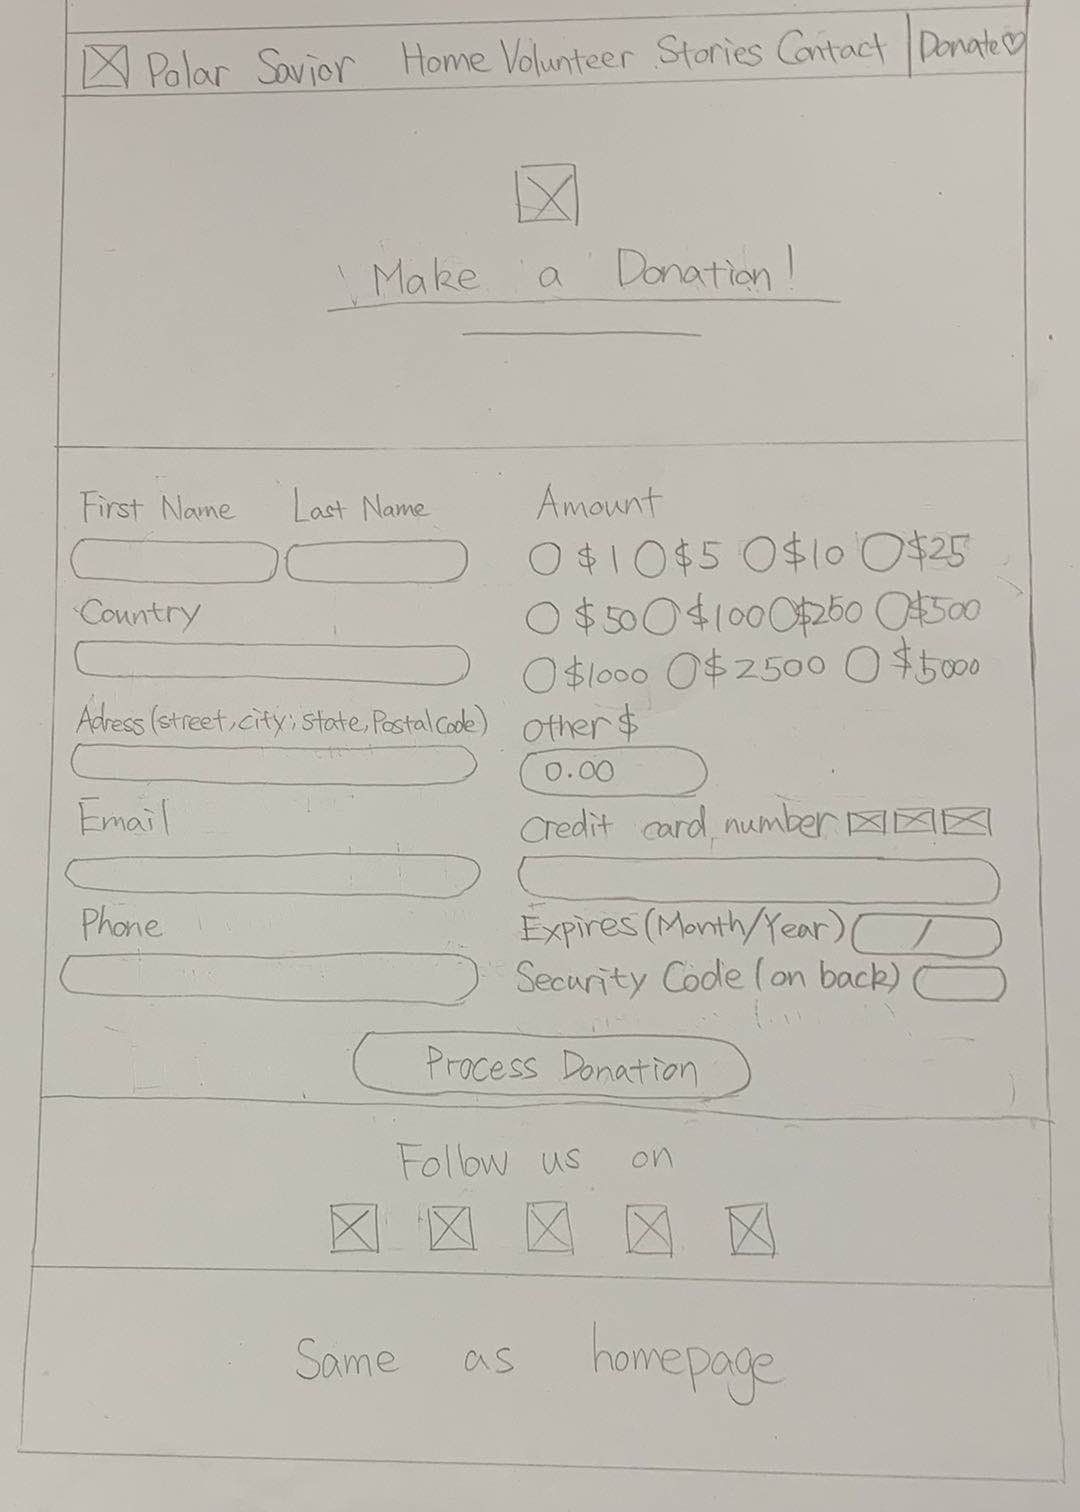 Polar Savior Home Volunteer Stories Contact Donate♡
Make a Donation!
First Name Last Name
Country
Adress (street, city, state, Postal Code)
Email
Phone
Amount
$1 $5 $10 $25
$50 $100 $250 $500
$1000 $2500 $5000
other $
0.00
Credit card number
Expires (Month/Year) /
Security Code (on back)
Process Donation
Follow us on
Same as homepage